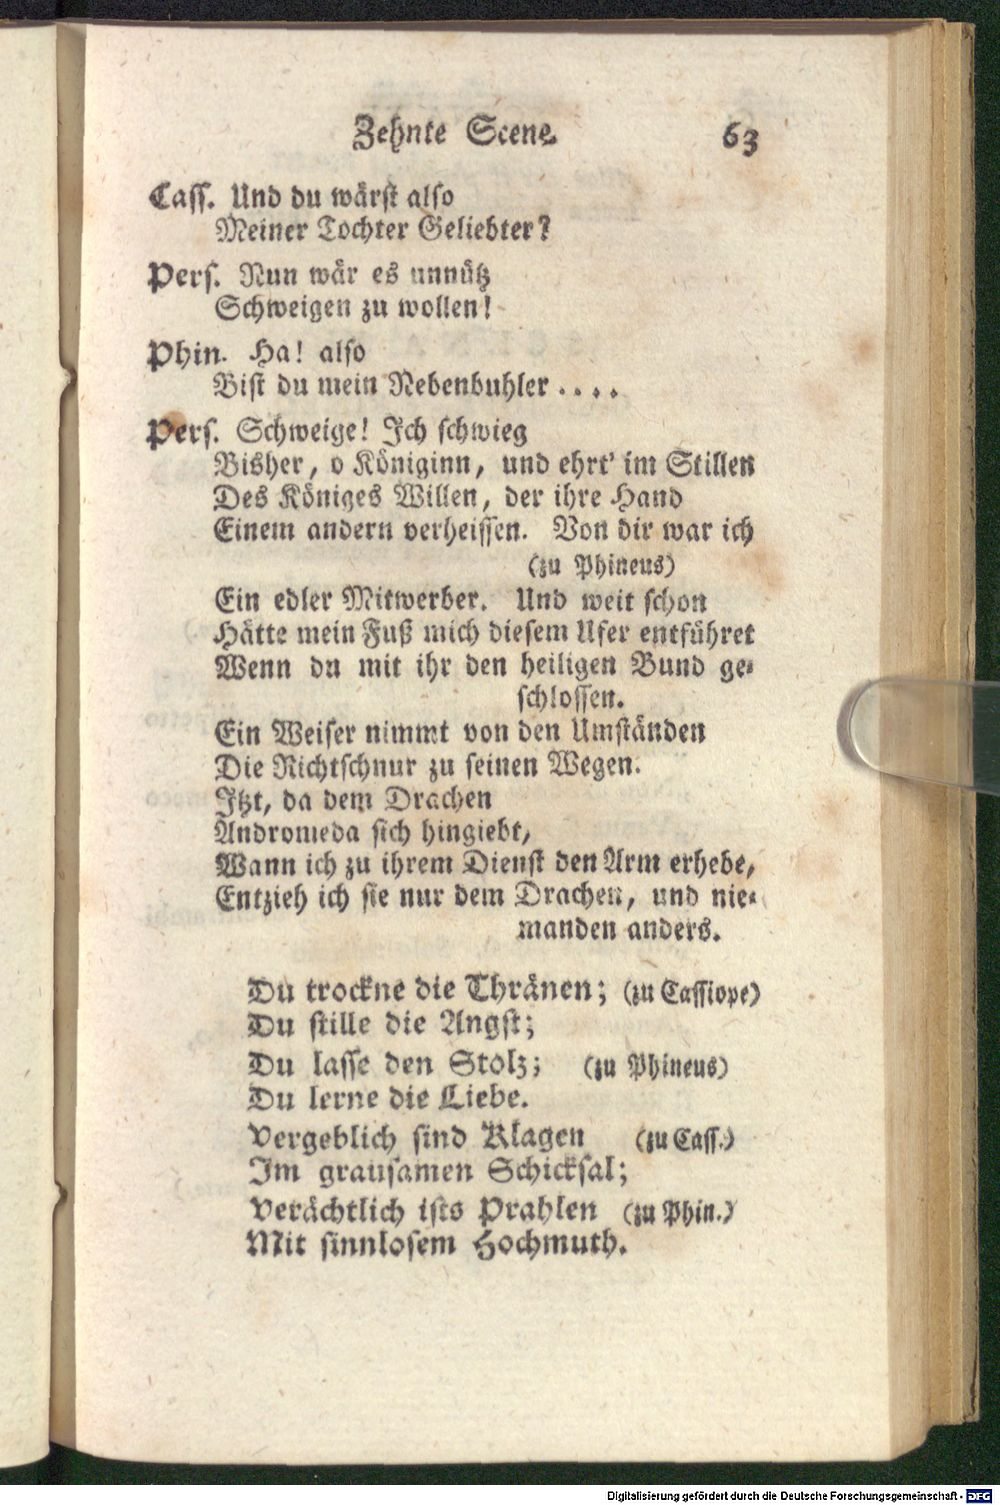 Zehnte Scene. 63
Cass. Und du wärst also
Meiner Tochter Geliebter?
Pers. Nun wär es unnütz
Schweigen zu wollen!
Phin. Ha! also
Bist du mein Nebenbuhler . . . .
Pers. Schweige! Ich schwieg
Bisher, o Königinn, und ehrt' im Stillen
Des Königes Willen, der ihre Hand
Einem andern verheissen. Von dir war ich
(zu Phineus)
Ein edler Mitwerber. Und weit schon
Hätte mein Fuß mich diesem Ufer entführet
Wenn du mit ihr den heiligen Bund ge-
schlossen.
Ein Weiser nimmt von den Umständen
Die Richtschnur zu seinen Wegen.
Itzt, da dem Drachen
Andromeda sich hingiebt,
Wann ich zu ihrem Dienst den Arm erhebe,
Entzieh ich sie nur dem Drachen, und nie-
manden anders.
Du trockne die Thränen; (zu Cassiope)
Du stille die Angst;
Du lasse den Stolz; (zu Phineus)
Du lerne die Liebe.
Vergeblich sind Klagen (zu Cass.)
Im grausamen Schicksal;
Verächtlich ists Prahlen (zu Phin.)
Mit sinnlosem Hochmuth.
Digitalisierung gefördert durch die Deutsche Forschungsgemeinschaft - DFG